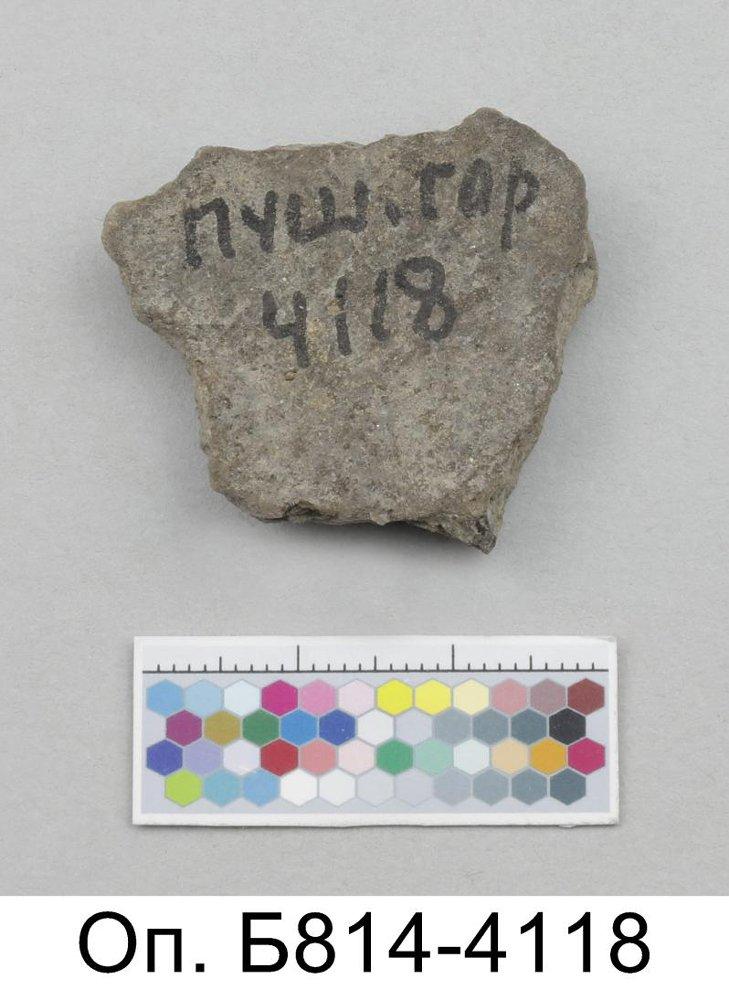 пуш. гар
4118
Оп. Б814-4118